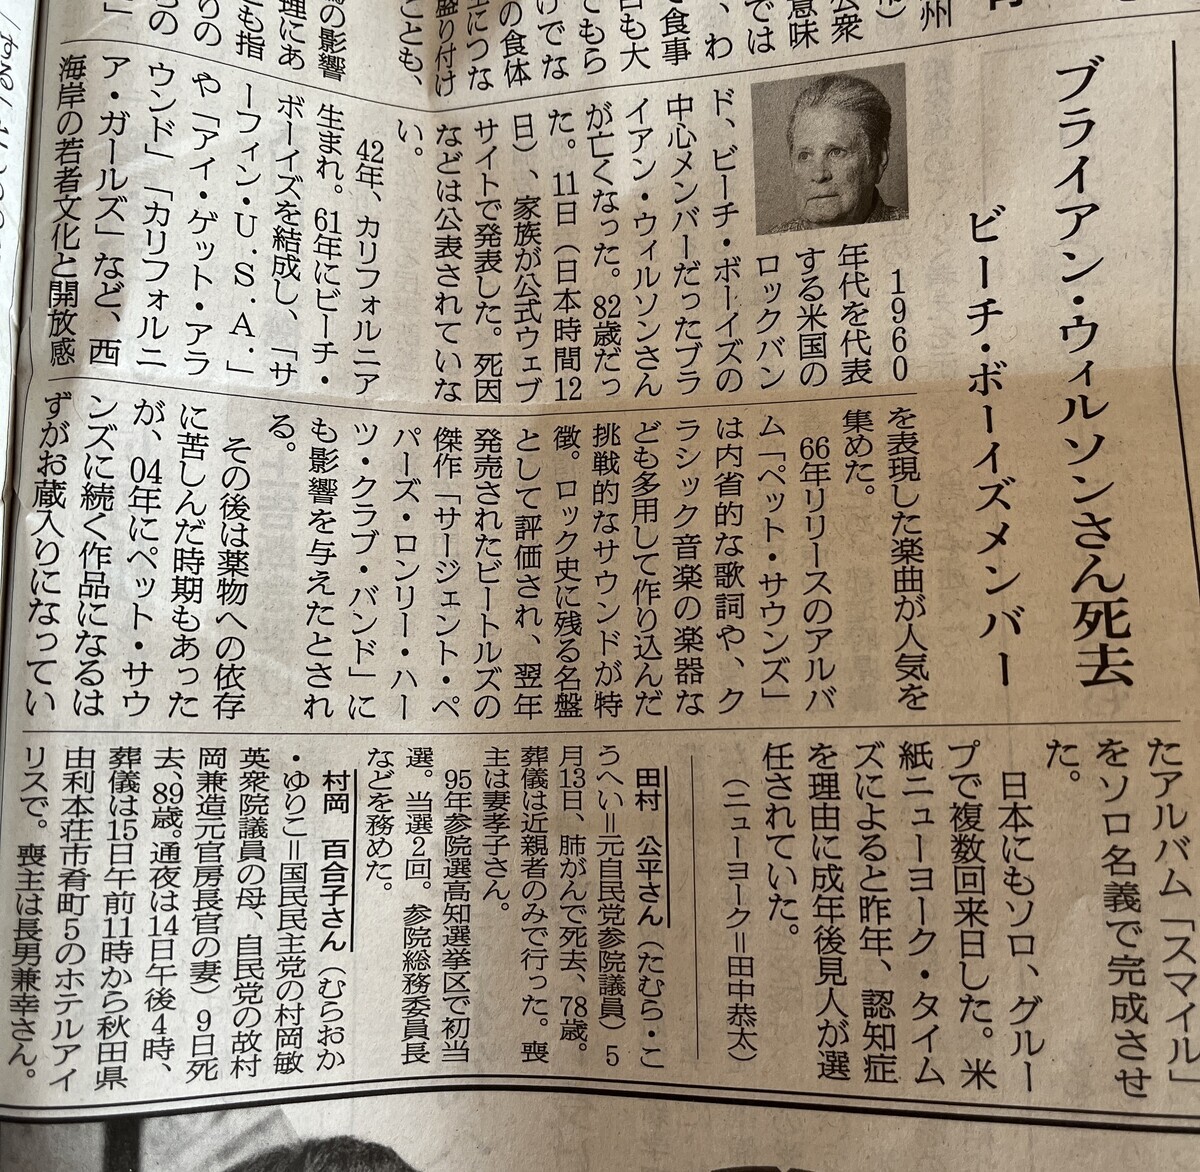 州
公衆
意味
では
、わ
食事
も大
てもら
けでな
の食体
につな
盛り付け
ことも、
の影響
理にあ
も指
りの
ブライアン・ウィルソンさん死去
ビーチ・ボーイズメンバー
1960
年代を代表
する米国の
ロックバン
ド、ビーチ・ボーイズの
中心メンバーだったブラ
イアン・ウィルソンさん
が亡くなった。82歳だっ
た。11日(日本時間12
日)、家族が公式ウェブ
サイトで発表した。死因
などは公表されていな
い。
42年、カリフォルニア
生まれ。61年にビーチ・
ボーイズを結成し、「サ
ーフィン・U.S.A.」
や「アイ・ゲット・アラ
ウンド」「カリフォルニ
ア・ガールズ」など、西
海岸の若者文化と開放感
を表現した楽曲が人気を
集めた。
66年リリースのアルバ
ム「ペット・サウンズ」
は内省的な歌詞や、ク
ラシック音楽の楽器な
ども多用して作り込んだ
挑戦的なサウンドが特
徴。ロック史に残る名盤
として評価され、翌年
発売されたビートルズの
傑作「サージェント・ペ
パーズ・ロンリー・ハー
ツ・クラブ・バンド」に
も影響を与えたとされ
る。
その後は薬物への依存
に苦しんだ時期もあった
が、04年にペット・サウ
ンズに続く作品になるは
ずがお蔵入りになってい
たアルバム「スマイル」
をソロ名義で完成させ
た。
日本にもソロ、グルー
プで複数回来日した。米
紙ニューヨーク・タイム
ズによると昨年、認知症
を理由に成年後見人が選
任されていた。
(ニューヨーク=田中恭太)
田村 公平さん(たむら・こ
うへい=元自民党参院議員)5
月13日、肺がんで死去、78歳。
葬儀は近親者のみで行った。喪
主は妻孝子さん。
95年参院選高知選挙区で初当
選。当選2回。参院総務委員長
などを務めた。
村岡 百合子さん(むらおか
・ゆりこ=国民民主党の村岡敏
英衆院議員の母、自民党の故村
岡兼造元官房長官の妻)9日死
去、89歳。通夜は14日午後4時、
葬儀は15日午前11時から秋田県
由利本荘市肴町5のホテルアイ
リスで。喪主は長男兼幸さん。